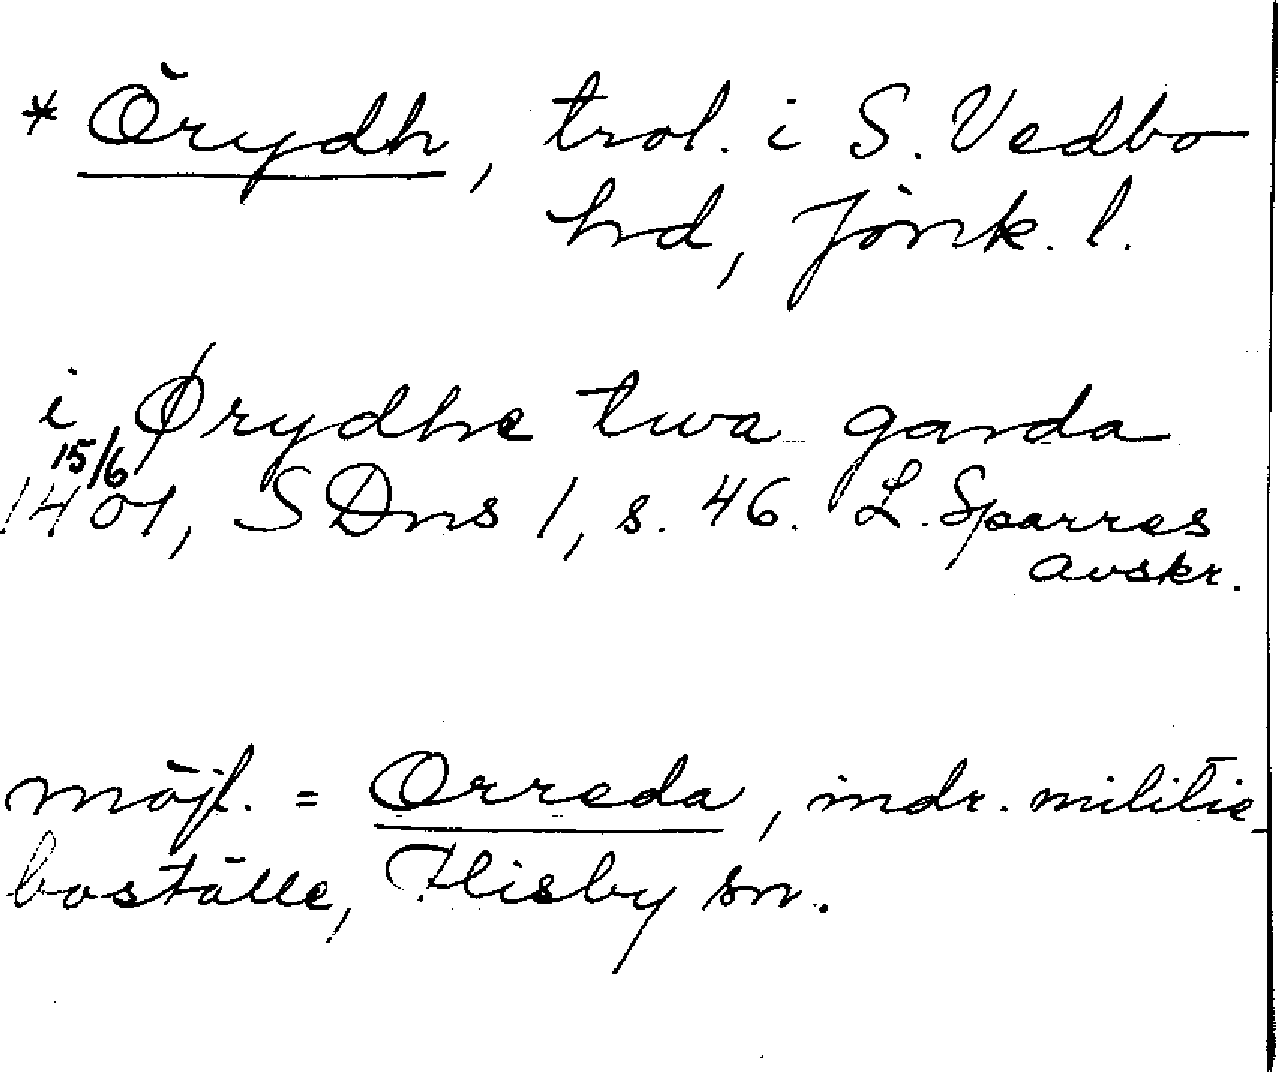 * Örydh, trol. i S. Vedbo
hrd, Jönk. l.
i Ørydhe twa garda
15/6
1401, SDns 1, s. 46. L. Sparres
avskr.
möjl. = Orreda, indr. militie-
boställe, Flisby sn.